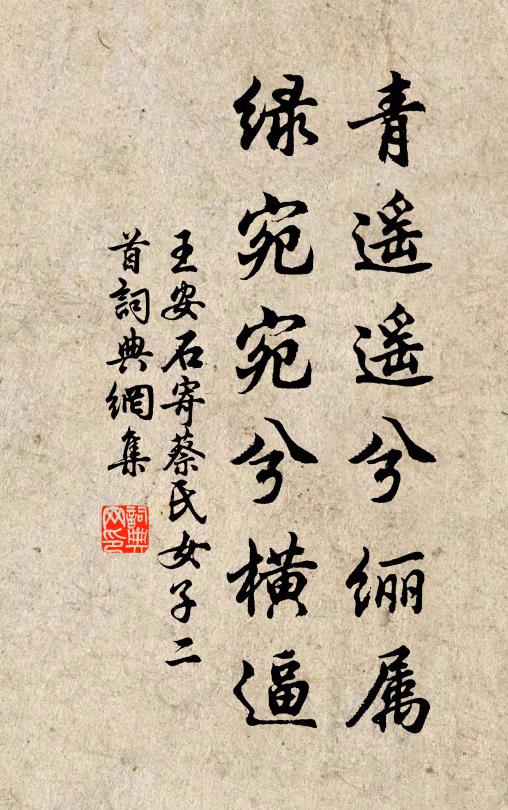 青遥遥兮𫄥属
绿宛宛兮横逼
王安石寄蔡氏女子二
首词典網集
詞典网印